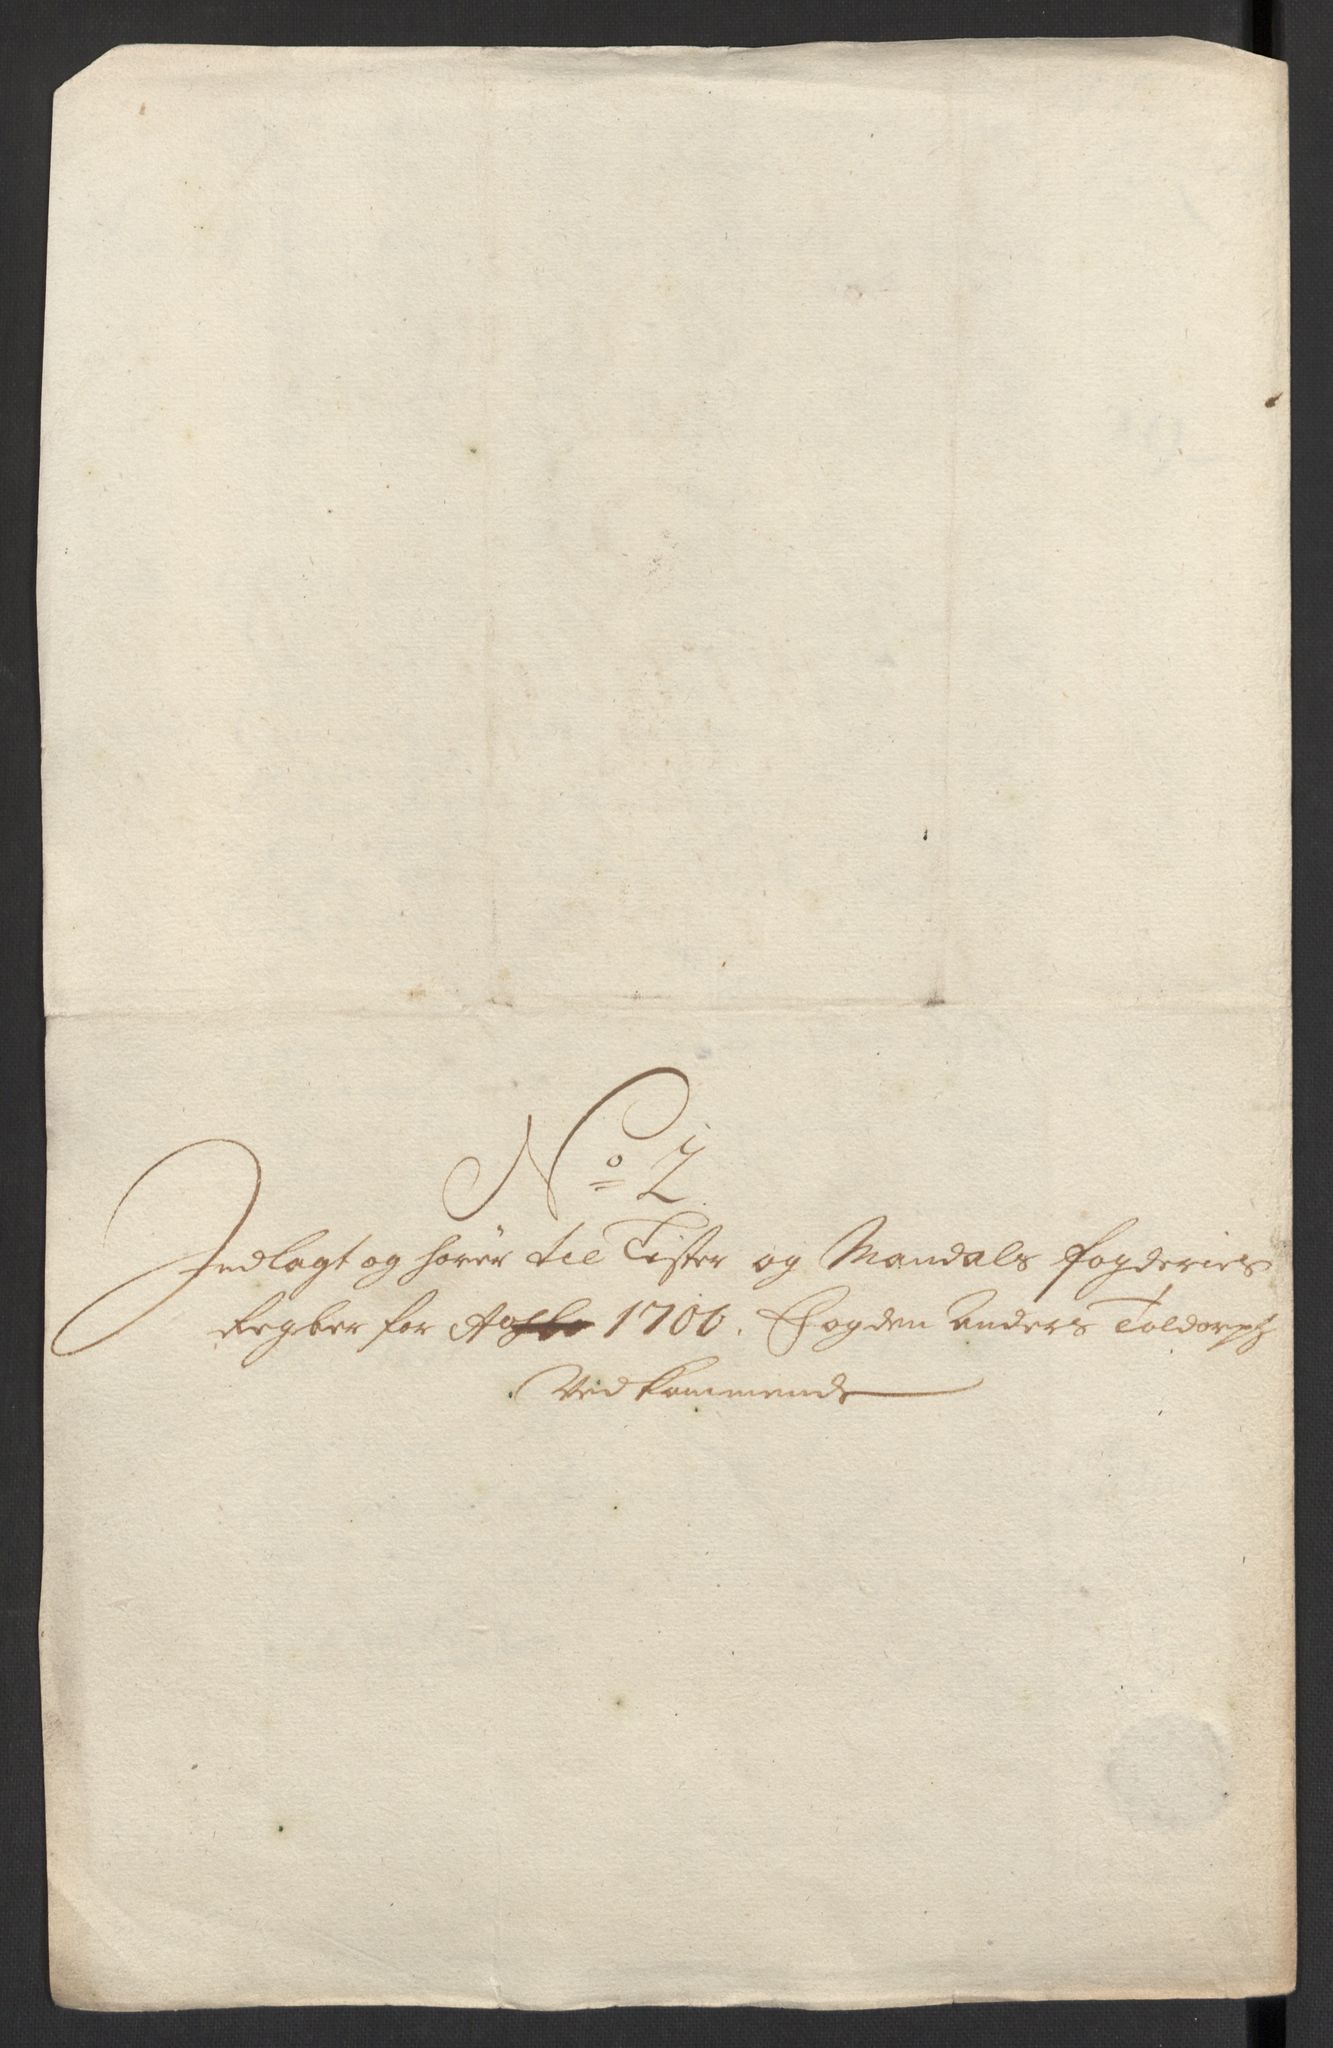 No 2
Indlagt og hører til Lister og Mandals fogderies
Regber for 1706. Fogden Anders Toldorph
Vedkommende